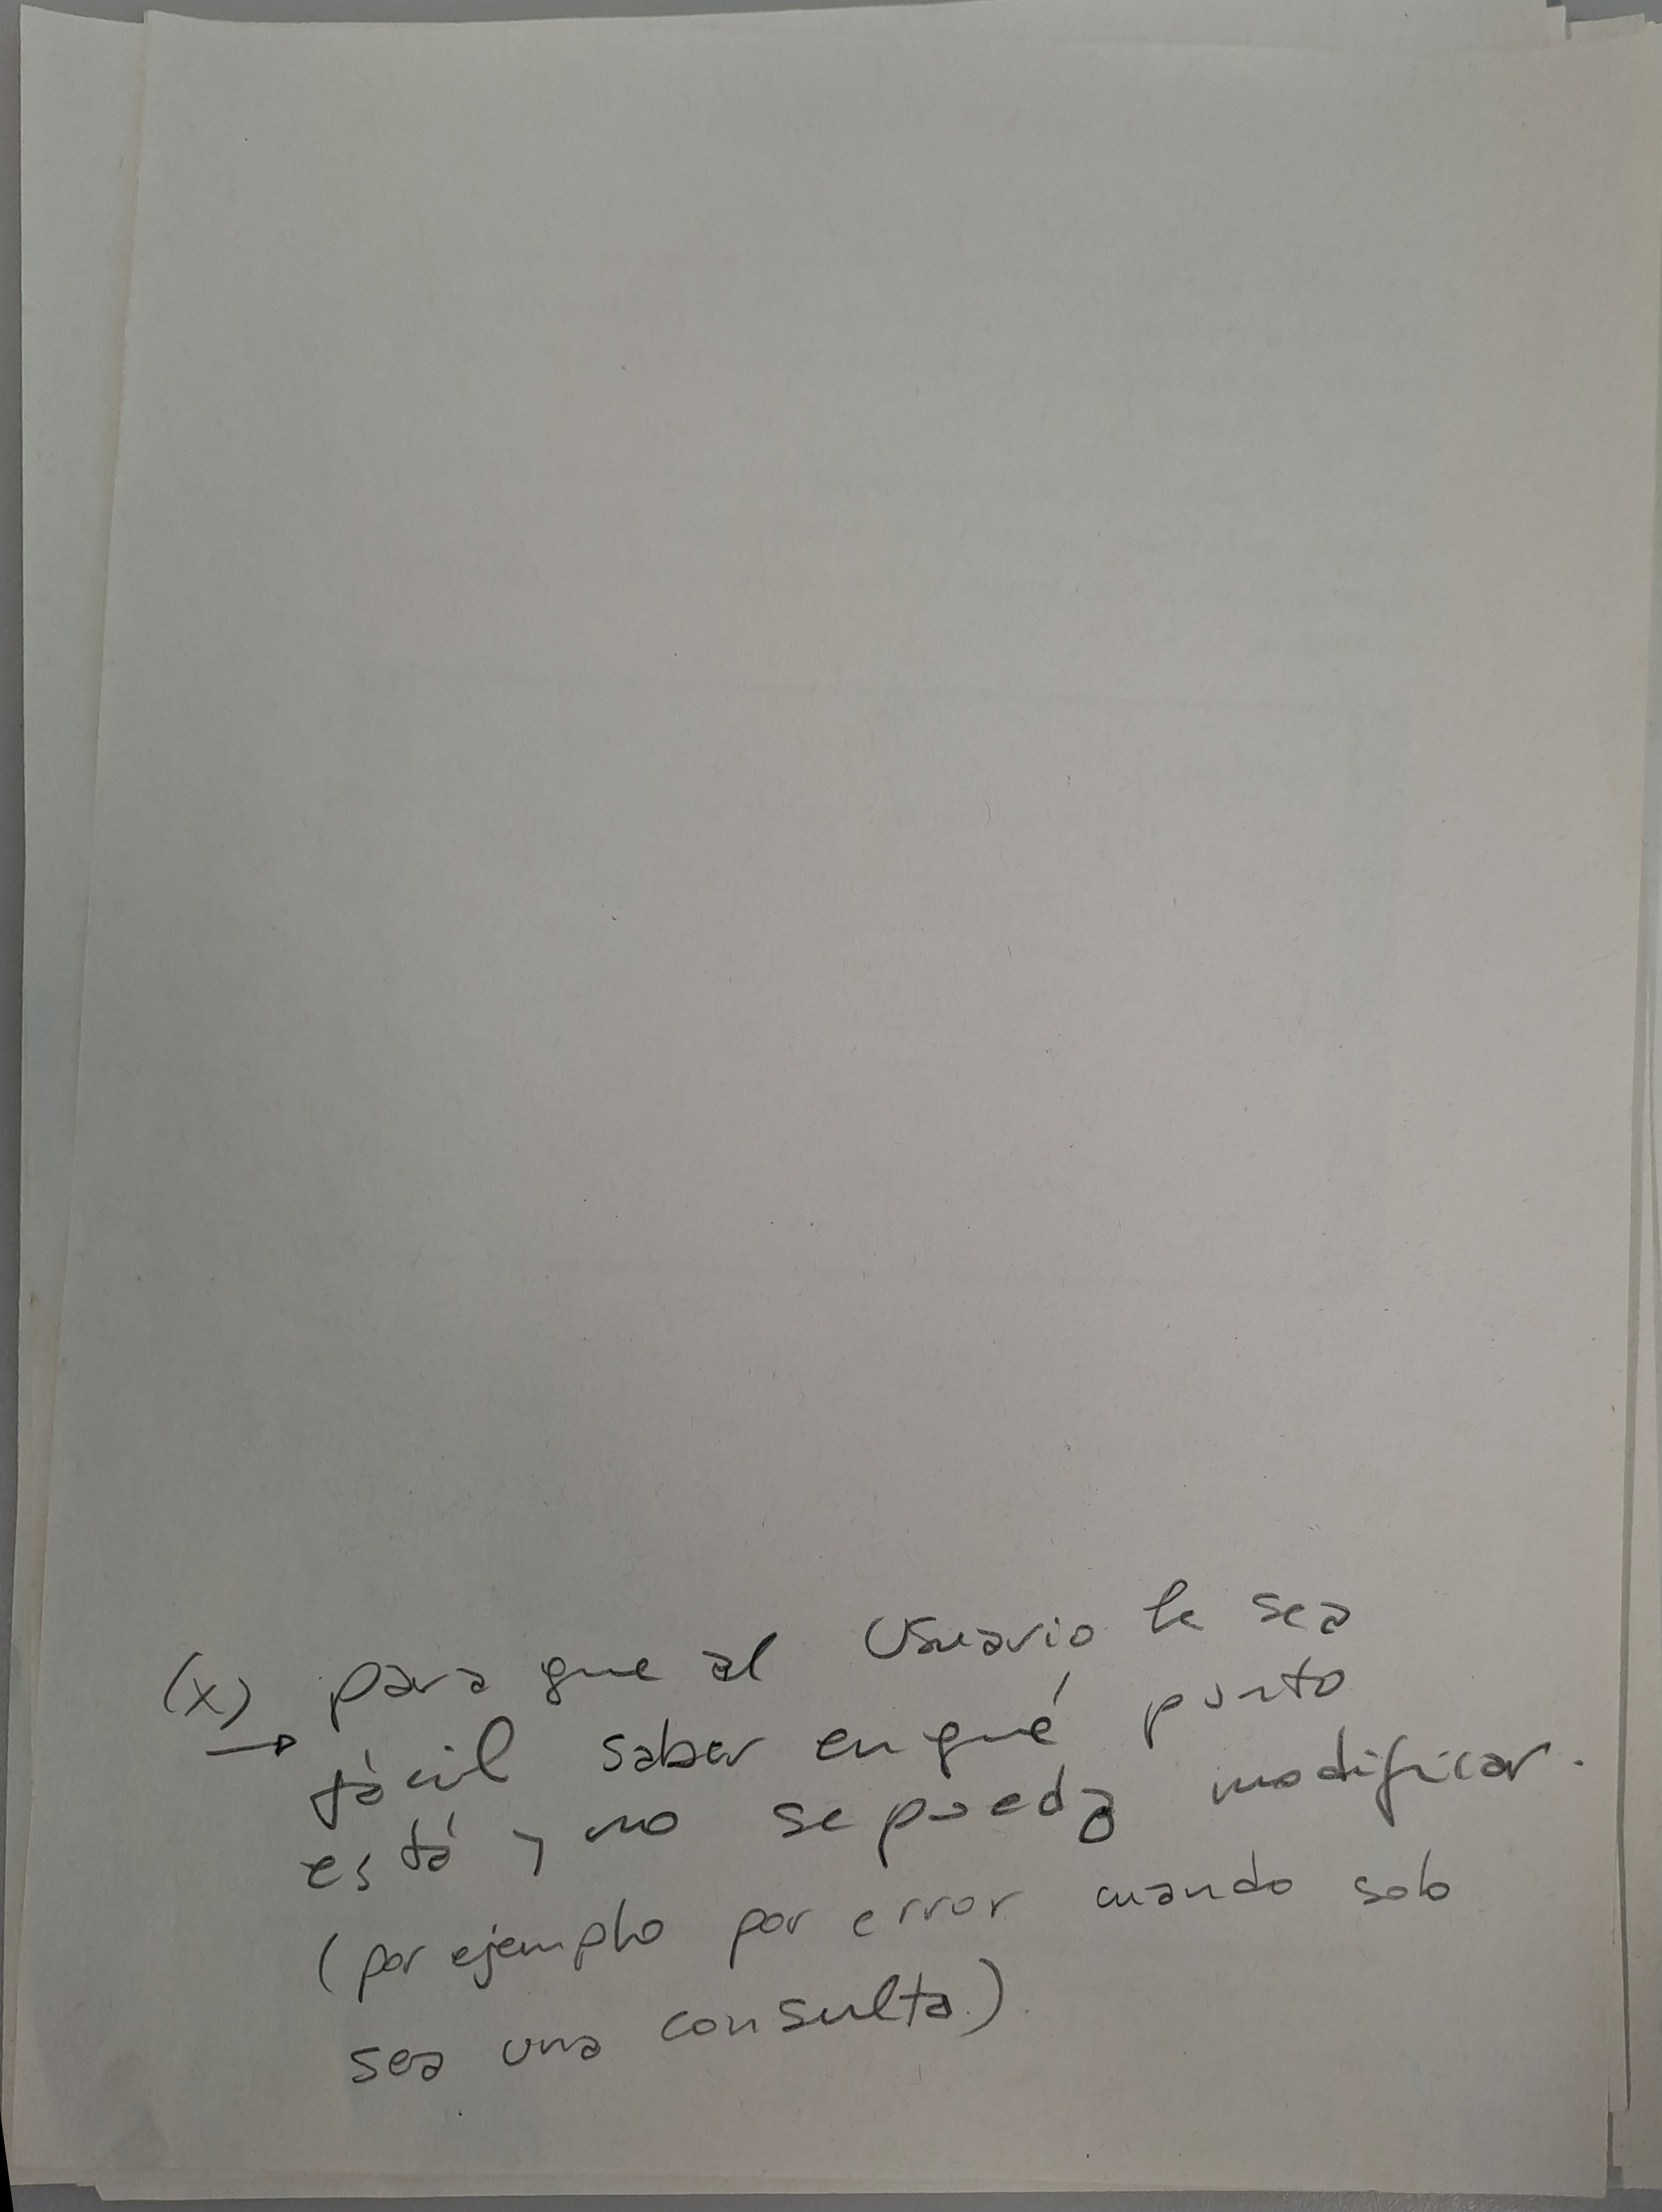 (x) para que al Usuario le sea
→ fácil saber en qué punto
está y no se pueda modificar.
(por ejemplo por error cuando solo
sea una consulta)